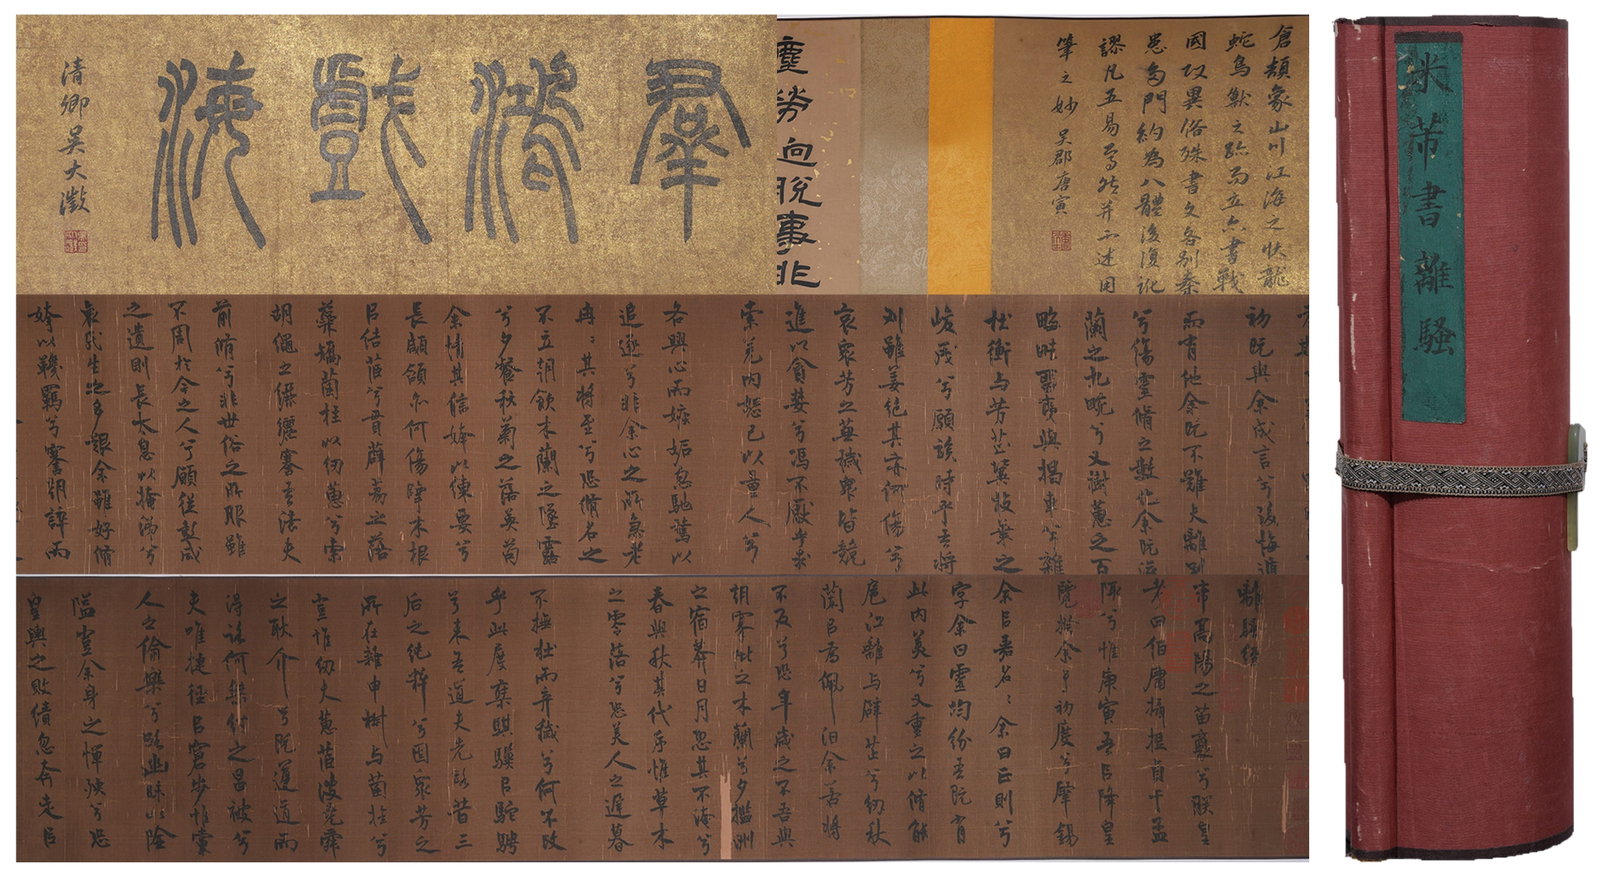 羣鴻戲海
清卿吳大澂
倉頡象山川江海之狀龍
蛇鳥獸之跡而立六書戰
國政異俗殊書文各別秦
患多門約為八體後復訛
謬凡五易焉然并不述用
筆之妙 吳郡唐寅
塵勞迥脫事非
初既與余成言兮後悔遁
而有他余既不難夫離別
兮傷靈脩之數化余既滋
蘭之九畹兮又樹蕙之百
畮畦留夷與揭車兮雜
杜衡與芳芷冀枝葉之
峻茂兮願竢時乎吾將
刈雖萎絕其亦何傷兮
哀衆芳之蕪穢衆皆競
進以貪婪兮馮不厭乎求
索羌內恕己以量人兮
各興心而嫉妬忽馳騖以
追逐兮非余心之所急老
冉〻其將至兮恐脩名之
不立朝飲木蘭之墜露
兮夕餐秋菊之落英苟
余情其信姱以練要兮
長顑頷亦何傷擥木根
以結茝兮貫薜荔之落
蘂矯菌桂以紉蕙兮索
胡繩之纚纚謇吾法夫
前脩兮非世俗之所服雖
不周於今之人兮願從彭咸
之遺則長太息以掩涕兮
哀民生之多艱余雖好脩
姱以鞿羈兮謇朝誶而
離騷經
帝高陽之苗裔兮朕皇
考曰伯庸攝提貞于孟
陬兮惟庚寅吾以降皇
覽揆余于初度兮肇錫
余以嘉名〻余曰正則兮
字余曰靈均紛吾既有
此內美兮又重之以脩能
扈江離與辟芷兮紉秋
蘭以為佩汩余若將
不及兮恐年歲之不吾與
朝搴阰之木蘭兮夕攬洲
之宿莽日月忽其不淹兮
春與秋其代序惟草木
之零落兮恐美人之遲暮
不撫壯而棄穢兮何不改
乎此度乘騏驥以馳騁
兮來吾道夫先路昔三
后之純粹兮固衆芳之
所在雜申椒與菌桂兮
豈惟紉夫蕙茝彼堯舜
之耿介兮既遵道而
得路何桀紂之昌被兮
夫唯捷徑以窘步惟黨
人之偷樂兮路幽昧以險
隘豈余身之憚殃兮恐
皇輿之敗績忽奔走以
米芾書離騷